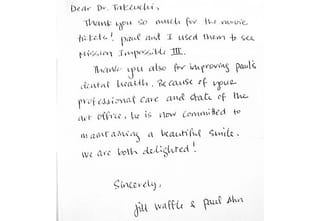 Dear Dr. Takeuchi,
Thank you so much for the movie
tickets! Paul and I used them to see
Mission Impossible III.
Thank you also for improving Paul's
dental health. Because of your
professional care and state of the
art office, he is now committed to
maintaining a beautiful smile.
We are both delighted!
Sincerely,
Jill Waffle & Paul Ahn